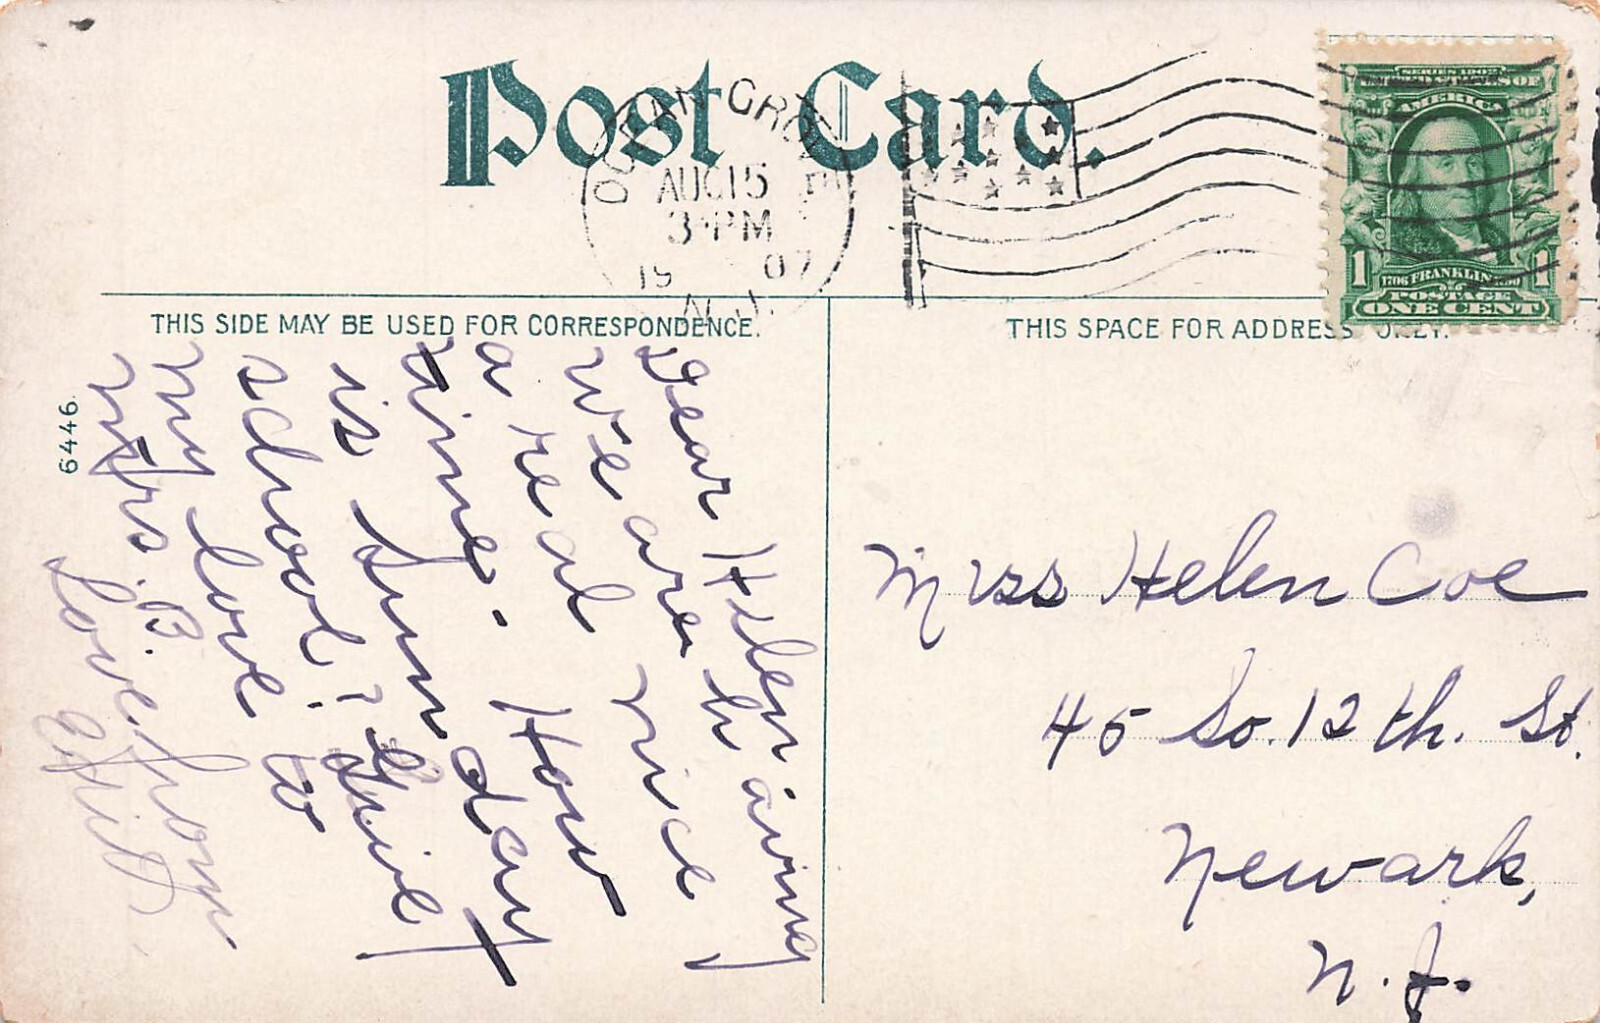 Post Card.
OCEAN GROVE
AUG 15
3-PM
1907
N.J.
SERIES 1902
UNITED STATES OF
AMERICA
1 1706 FRANKLIN 1790 1
POSTAGE
ONE CENT
THIS SIDE MAY BE USED FOR CORRESPONDENCE.
THIS SPACE FOR ADDRESS ONLY.
6446.
Dear Helen
We are having
a real nice
time. How
is Sunday
school? Give
my love to
Mrs. B.
Love from
Miss Helen Coe
45 So. 12th. St.
Newark,
N.J.